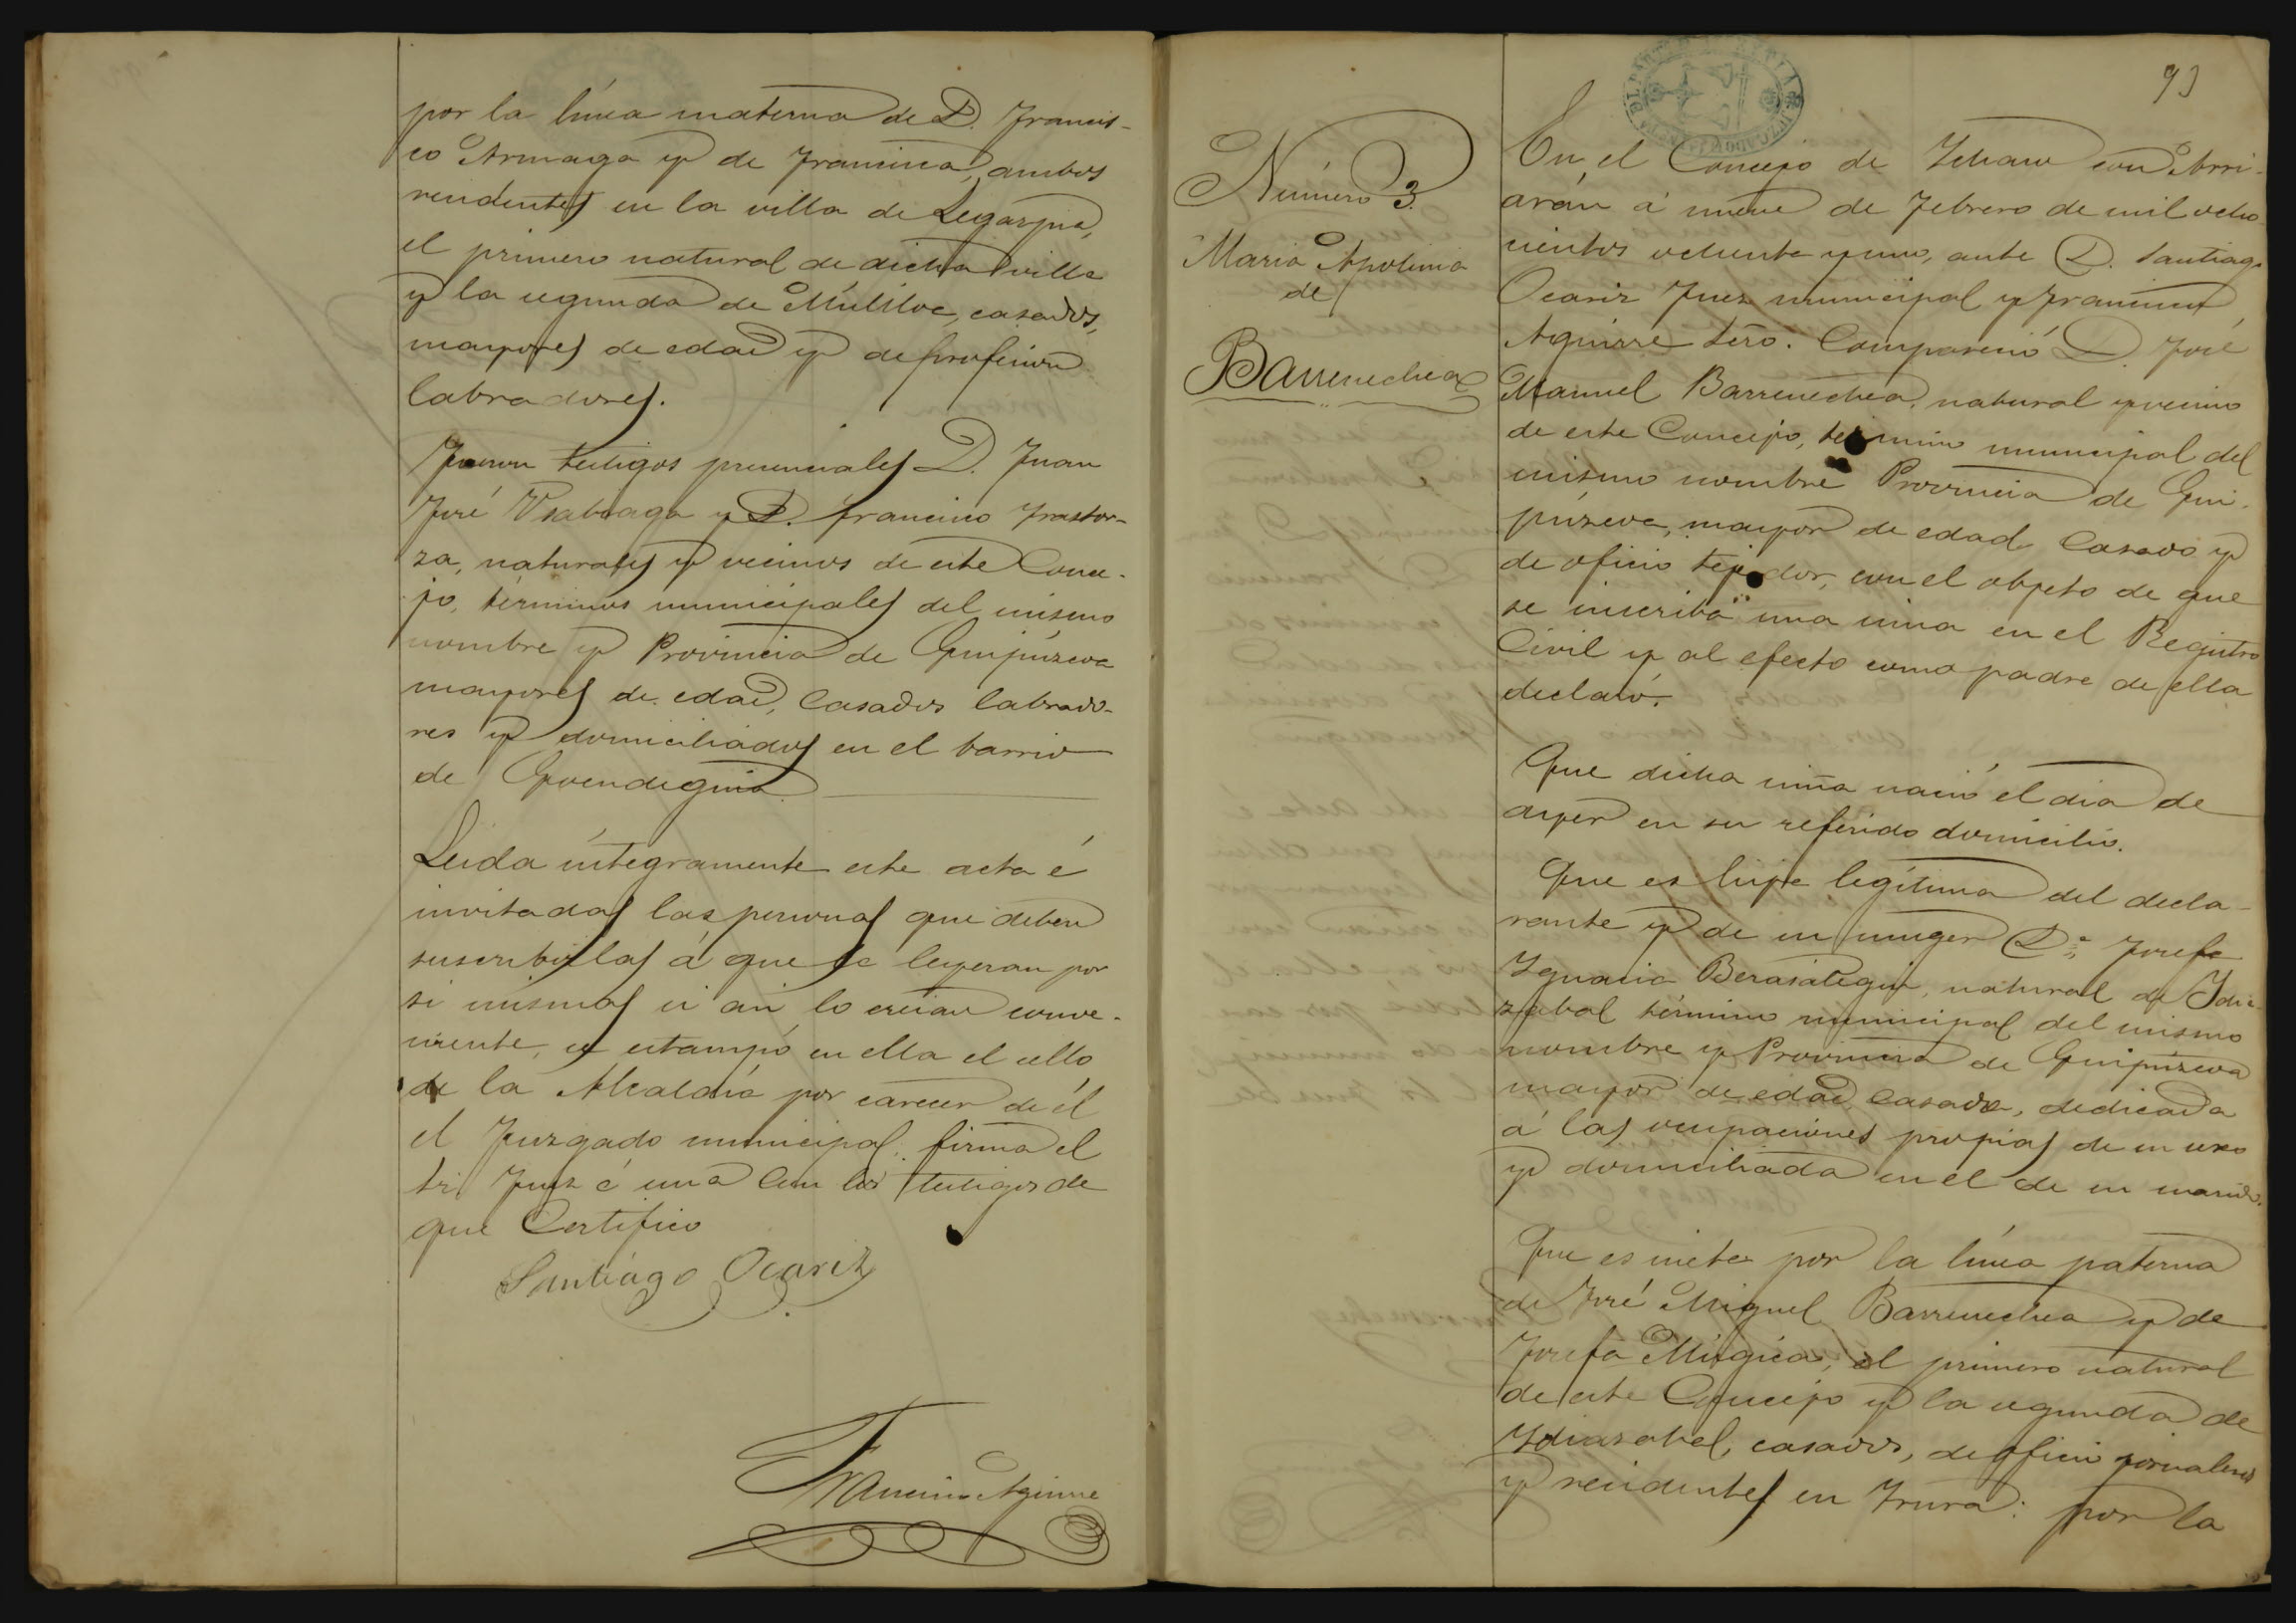 por la línea materna de D. Francis-
co Armaga y de Francisca, ambos
residentes en la villa de Legazpia,
el primero natural de dicha villa
y la segunda de Mutiloa, casados,
mayores de edad y de profesion
labradores.
Fueron testigos presenciales D. Juan
José Usabiaga y D. Francisco Irastor-
za, naturales y vecinos de este Conce-
jo, terminos municipales del mismo
nombre y Provincia de Guipúzcoa
mayores de edad, Casados labrado-
res y domiciliados en el barrio
de Goendeguia
Leida integramente este acta é
invitadas las personas que deben
suscribirlas á que la leyeran por
si mismas si asi lo creian conve-
niente, se estampó en ella el sello
de la Alcaldía por carecer de él
el Juzgado municipal; firma el
Sr. Juez é una Con los testigos de
que Certifico
Santiágo Ocariz
Francisco Aguirre
93
Número 3.
Maria Apolonia
de
Barrenechea
En el Concejo de Ichaso con Arri-
arán á nueve de Febrero de mil ocho
cientos ochenta y uno, ante D. Santiago
Ocariz Juez municipal y Francisco
Aguirre Srio. Compareció D. José
Manuel Barrenechea, natural y vecino
de este Concejo, termino municipal del
mismo nombre Provincia de Gui-
púzcoa, mayor de edad Casado y
de oficio tejedor, con el objeto de que
se inscriba una nina en el Registro
Civil y al efecto como padre de ella
declaró.
Que dicha niña nació el dia de
ayer en su referido domicilio.
Que es hija legítima del decla-
rante y de su muger D.ª Josefa
Ygnacia Berasategui, natural de Idia-
zabal término municipal del mismo
nombre y Provincia de Guipúzcoa
mayor de edad, Casada, dedicada
á las ocupaciones propias de su sexo
y domiciliada en el de su marido.
Que es nieta por la línea paterna
de José Miguel Barrenechea y de
Josefa Múgica, el primero natural
de este Concejo y la segunda de
Ydiazabal, casados, de oficio jornaleros
y residentes en Irura: por la